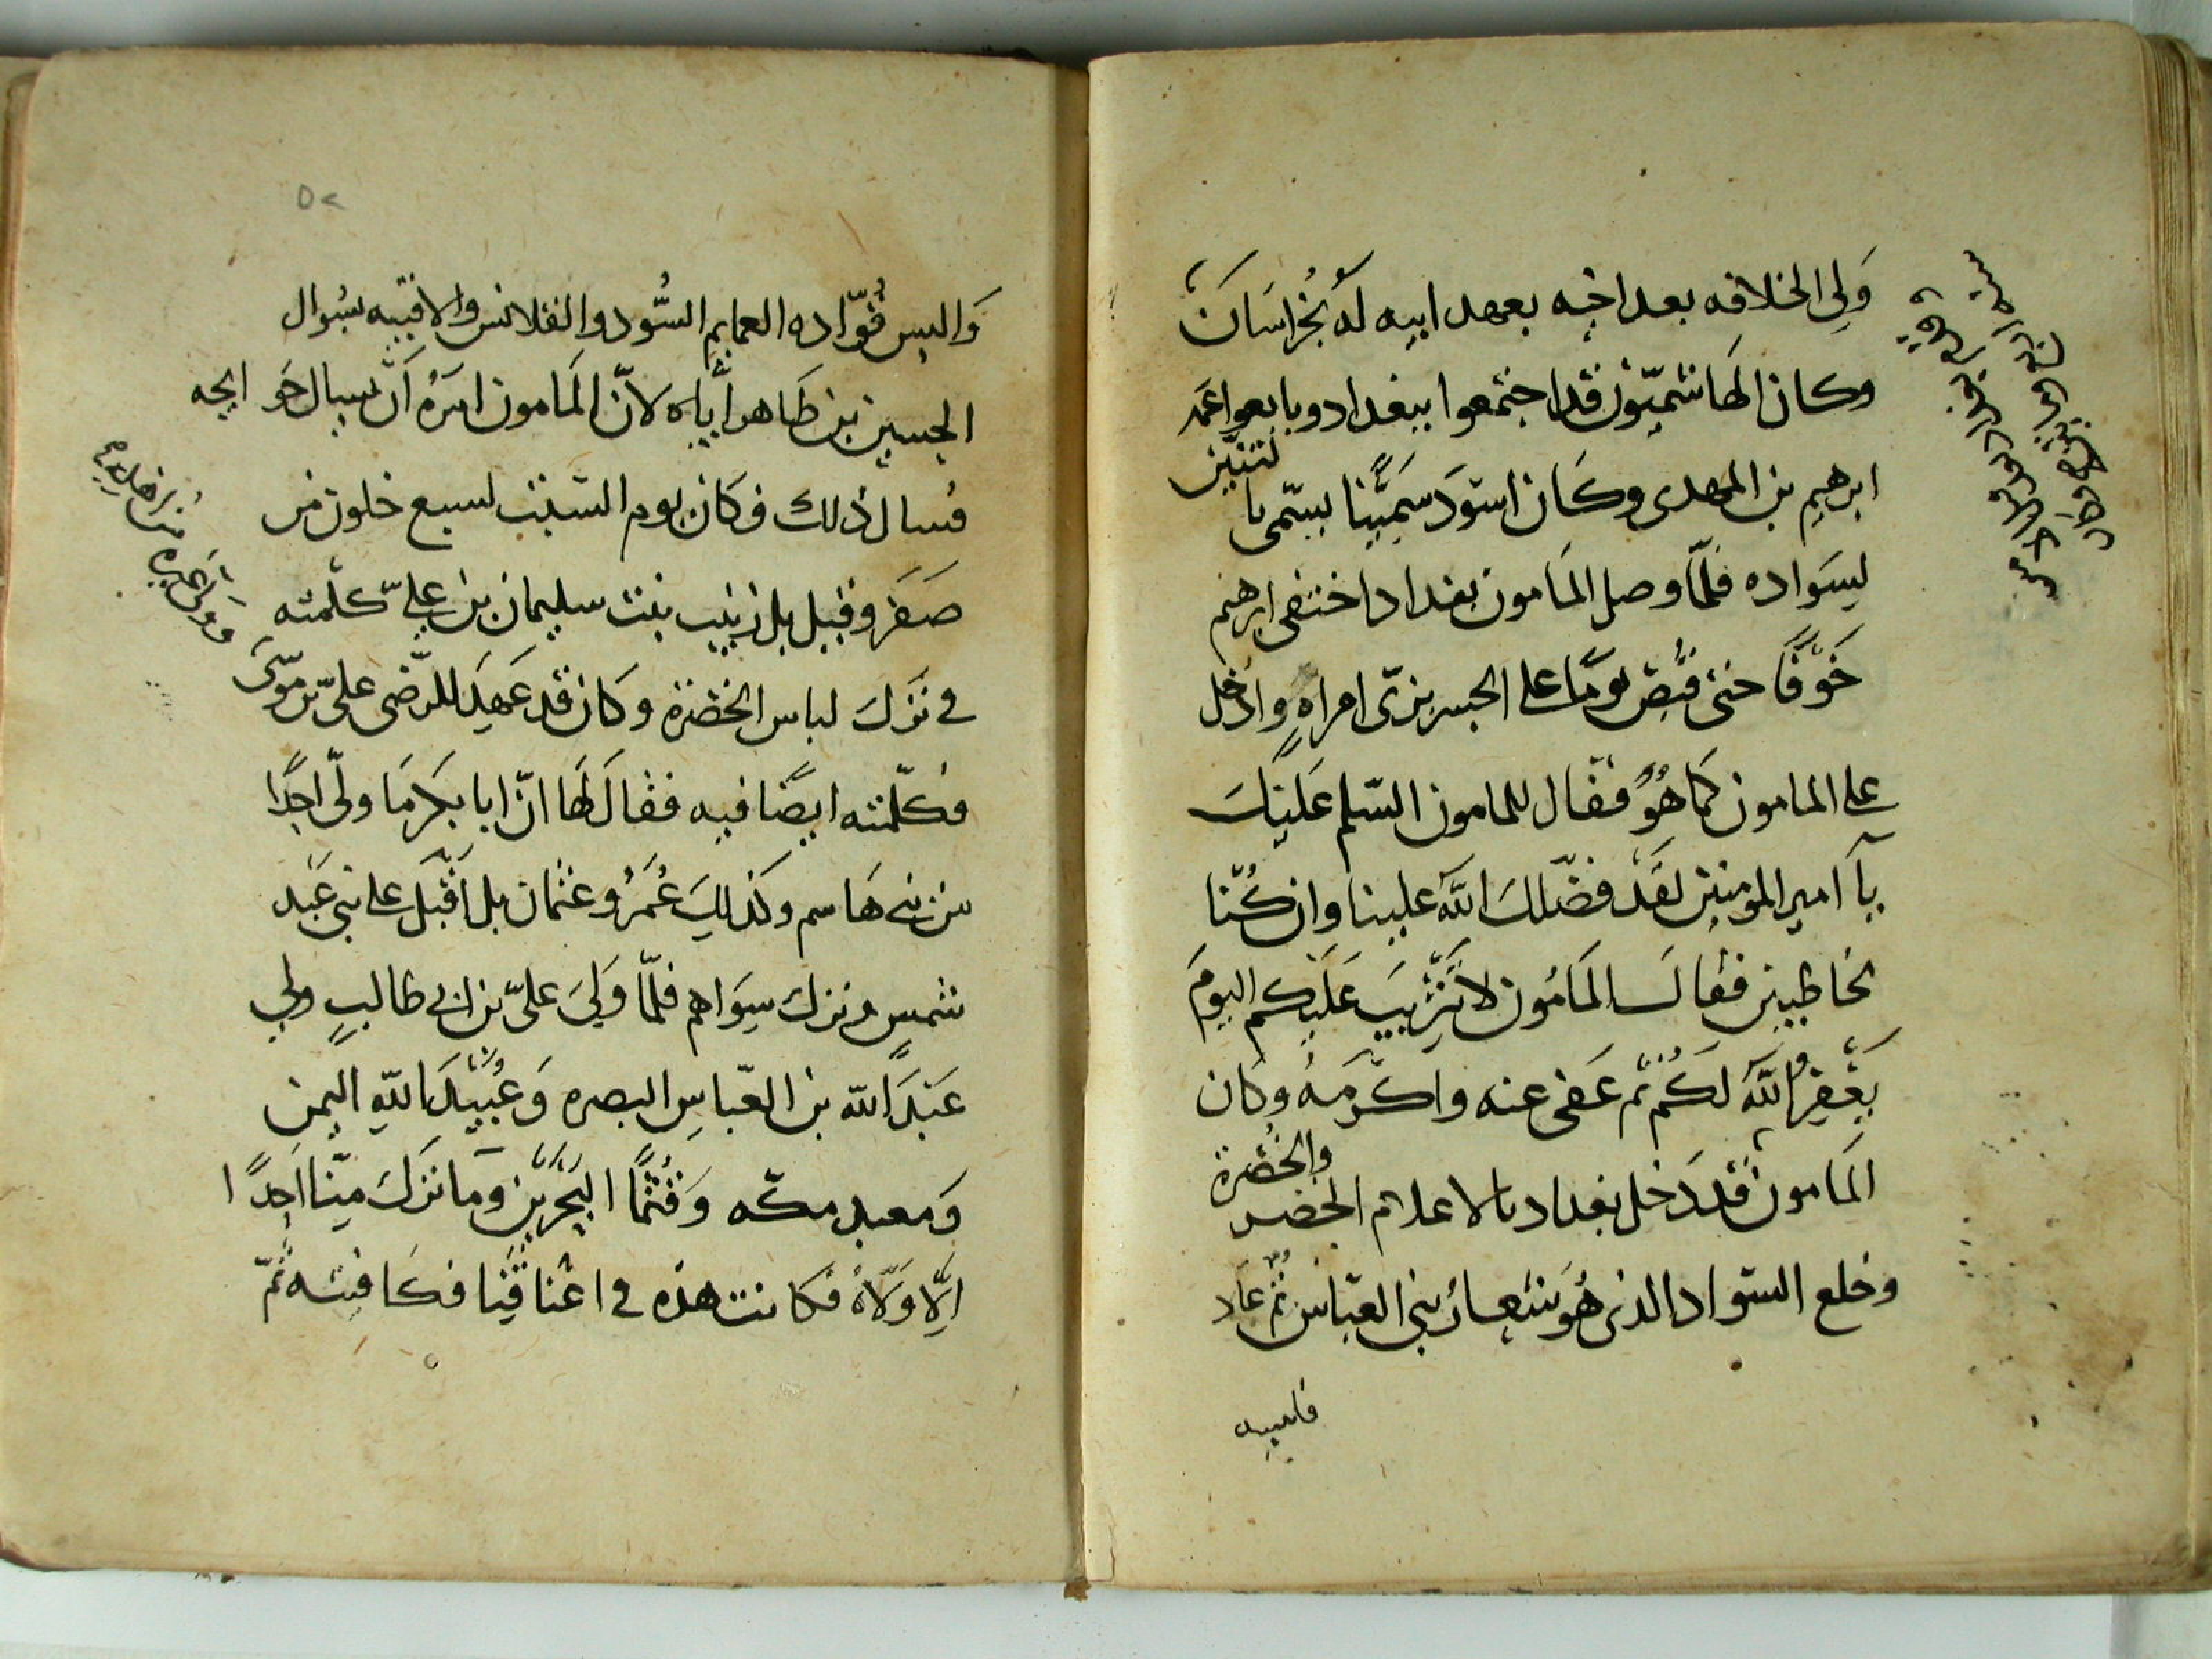 وَلِي الخلافه بعد اخيه بعهد ابيه لَهُ بخُراسَان
وكان الهَاشميّون قد اجتمعوا ببغداد وبايعوا عمّه
ابرهيم بن المهدى وكَان اسوَد سَميًنا يسمّى با
لتنّين
لِسَواده فلمّا وصل المَامون بغداد اختفى ابرهيم
خَوفًا حتى قُبِض يومًا على الجسر بزىّ امراهٍ وادُخل
على المامون كمَا هُوَ فقال للمامون السّلم عَليَكَ
يآ امير المومنين لقَد فضّلك اللّه علينا وان كُنّا
لخاطيين فقالَ المَامُون لا تَثريبَ عَلَيكم اليومَ
يَغفِرُ اللّه لَكُم ثم عَفى عنه واكرَمَهُ وكان
المَامون قد دَخل بغداد بالاعلام الخضر
والخُضرة
وخلع السّواد الذى هُوَ شِعارُ بنى العبّاس ثُمّ عَاد
وَالبس قُوّاده العمايم السُّود والقلانس والاقبيه بسُوال
الحسين بن طَاهر ايّاه لانّ المَامون امَرهُ اَن يسال حَوايجه
فسال ذلك فكان يوم السّبت لسبع خلون من
صَفَر وقيل بل زينب بنت سليمان بن عليّ كلّمته
فى تَركَ لباس الخضرة وكان قد عَهِدَ للرّضى علىّ بن موسَى
فكلّمته ايضًا فيه فقال لهَا انّ ابا بكر مَا ولّى احدًا
من بنى هَاسم وكذلِكَ عُمَرُ وعثمان بل اَقبَل على بنى عَبد
شمسٍ وترك سِوَاهم فلمّا وَلِيَ علىّ بن ابى طالبٍ ولّي
عَبدَ اللّه بن العّباسِ البصره وَعُبَيدَ اللّهِ اليمن
وَمعبد مكّه وَقُثَمًا البَحرَينِ وَما تَركَ مِنّا احَدًا
اِلّا وَلّاهُ فكانت هذه فى اعْناقِنَا فكَافيته ثُمّ